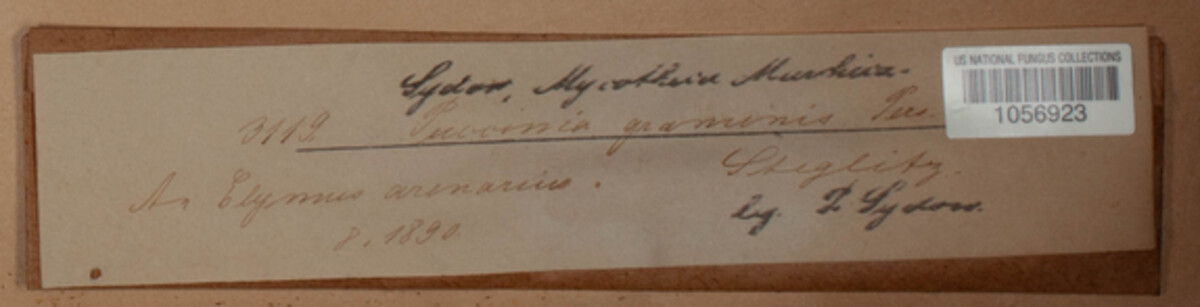 Sydow, Mycotheca Marchica.
3112 Puccinia graminis Pers.
An Elymus arenarius. Steglitz.
8. 1890. leg. P. Sydow.
US NATIONAL FUNGUS COLLECTIONS
1056923